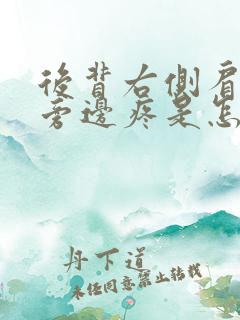 後背右側肩
旁邊疼是怎
丹下道
未经同意禁止转载